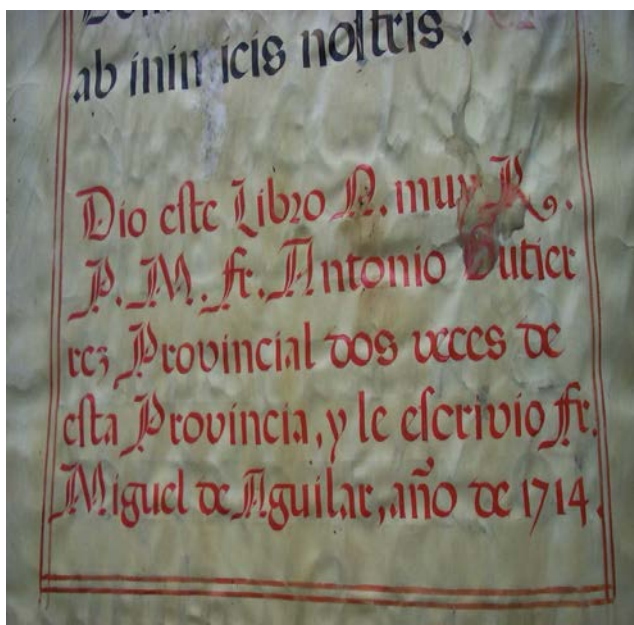 ab inimicis nostris.
Dio este Libro N. muy R.
P. M. fr. Antonio Gutier
rez Provincial dos veces de
esta Provincia, y le escrivio fr.
Miguel de Aguilar, año de 1714.